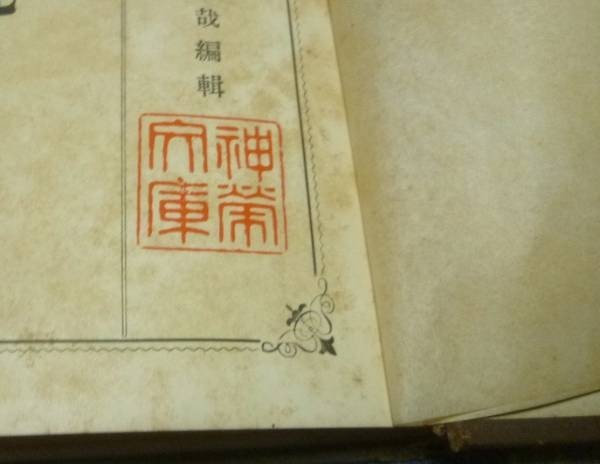 哉編輯
神榮
文庫